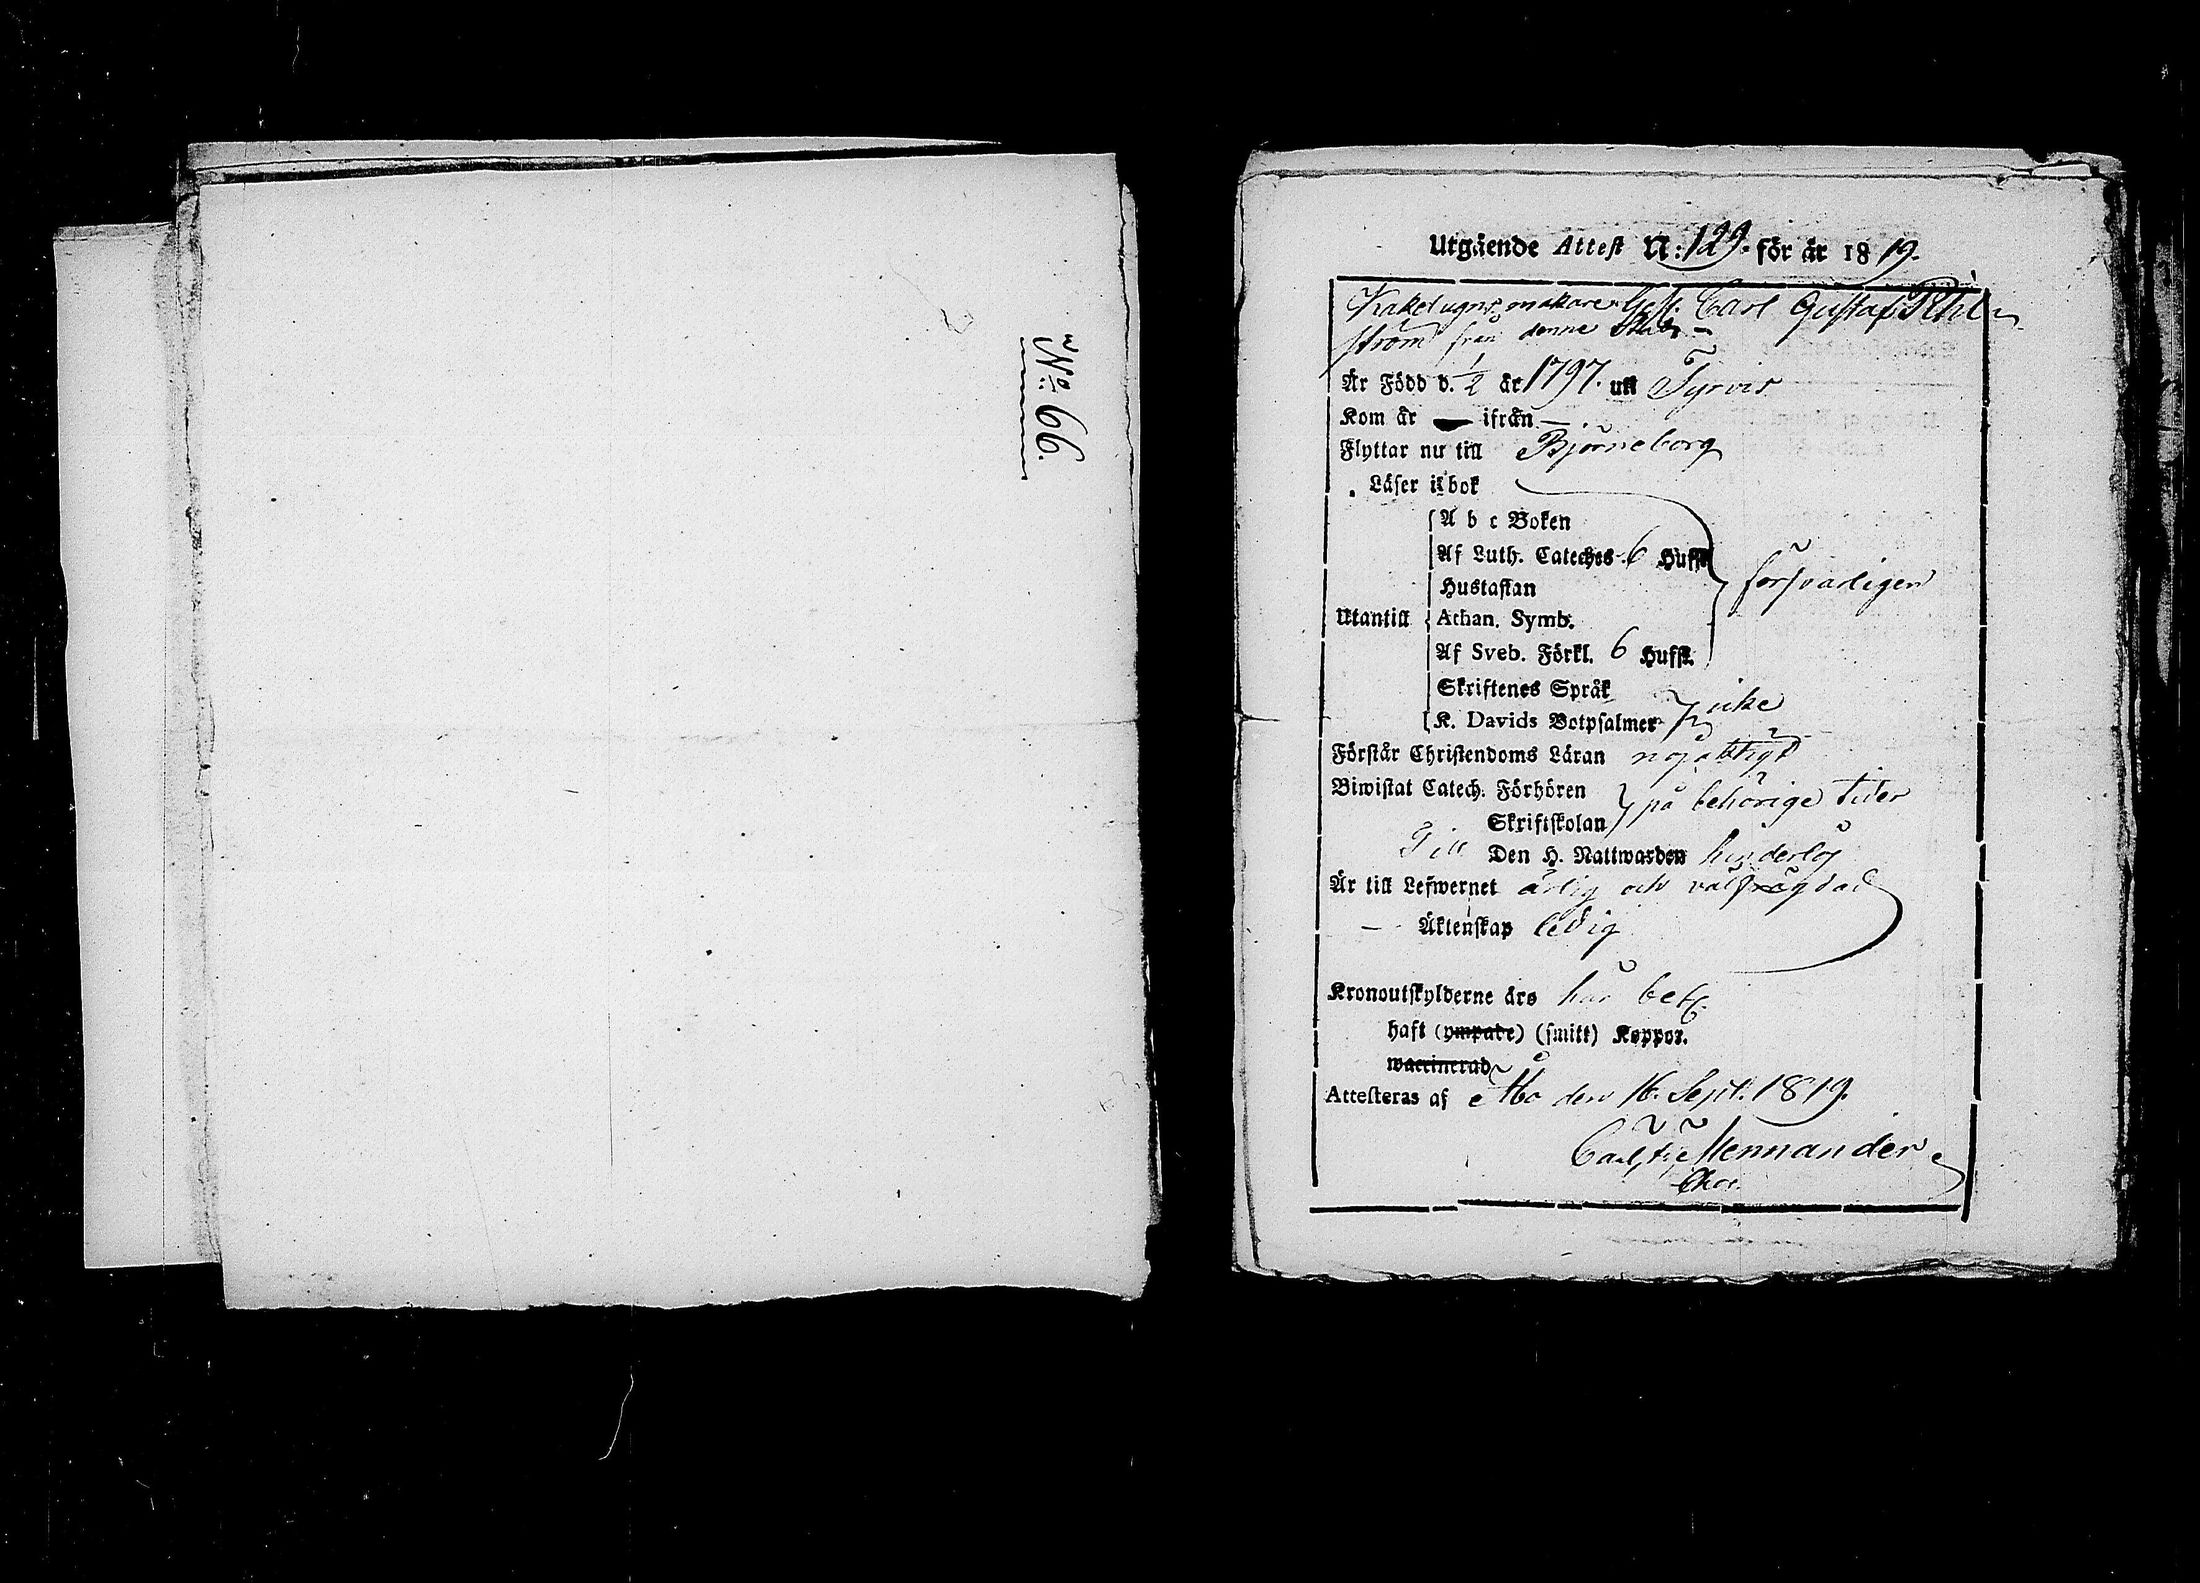 No 66.
Utgående Attest N: 129. för år 1819.
Kakelugns makare Gess. Carl Gustaf Rhén
ström från denne Stad
Är Född d. 1/2 år 1797. uti Tyrvis
Kom år — ifrån —
Flyttar nu till Björneborg
Läser i bok
A b c Boken
Af Luth. Cateches 6 Hufst.
Hustaflan
försvarligen
Utantill Athan. Symb.
Af Sveb. Förkl. 6 Hufst.
Skriftenes Språk
K. Davids Botpsalmer icke
Förstår Christendoms Läran nöjaktigt
Biwistat Catech. Förhören
på behörige tider
Skriftskolan
Till Den H. Nattwarden hinderlös
Är till Lefwernet ärlig och välfrägdad
— Äktenskap ledig
Kronoutskylderne års här bet.
haft (ympade) (smitt) Koppor.
waccinerad
Attesteras af Åbo den 16. Sept. 1819.
Mennander